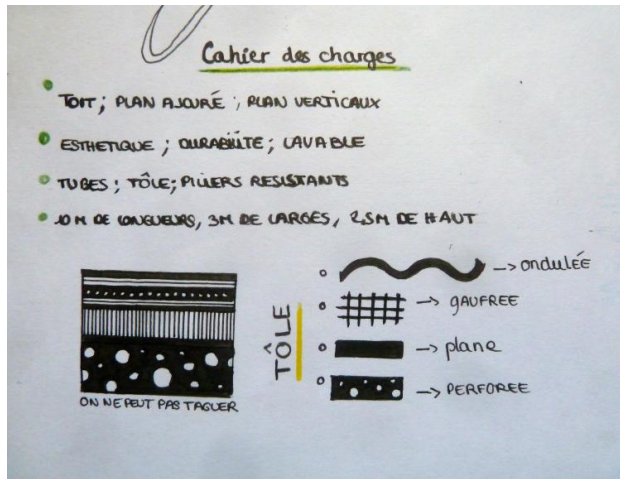 Cahier des charges
TOIT; PLAN AJOURÉ; PLAN VERTICAUX
ESTHETIQUE; DURABILITE; LAVABLE
TUBES; TÔLE; PILIERS RESISTANTS
10 M DE LONGUEURS, 3M DE LARGES, 2,5M DE HAUT
ON NE PEUT PAS TAGUER
TÔLE
-> ondulée
-> gAUFREE
-> plane
-> PERFOREE